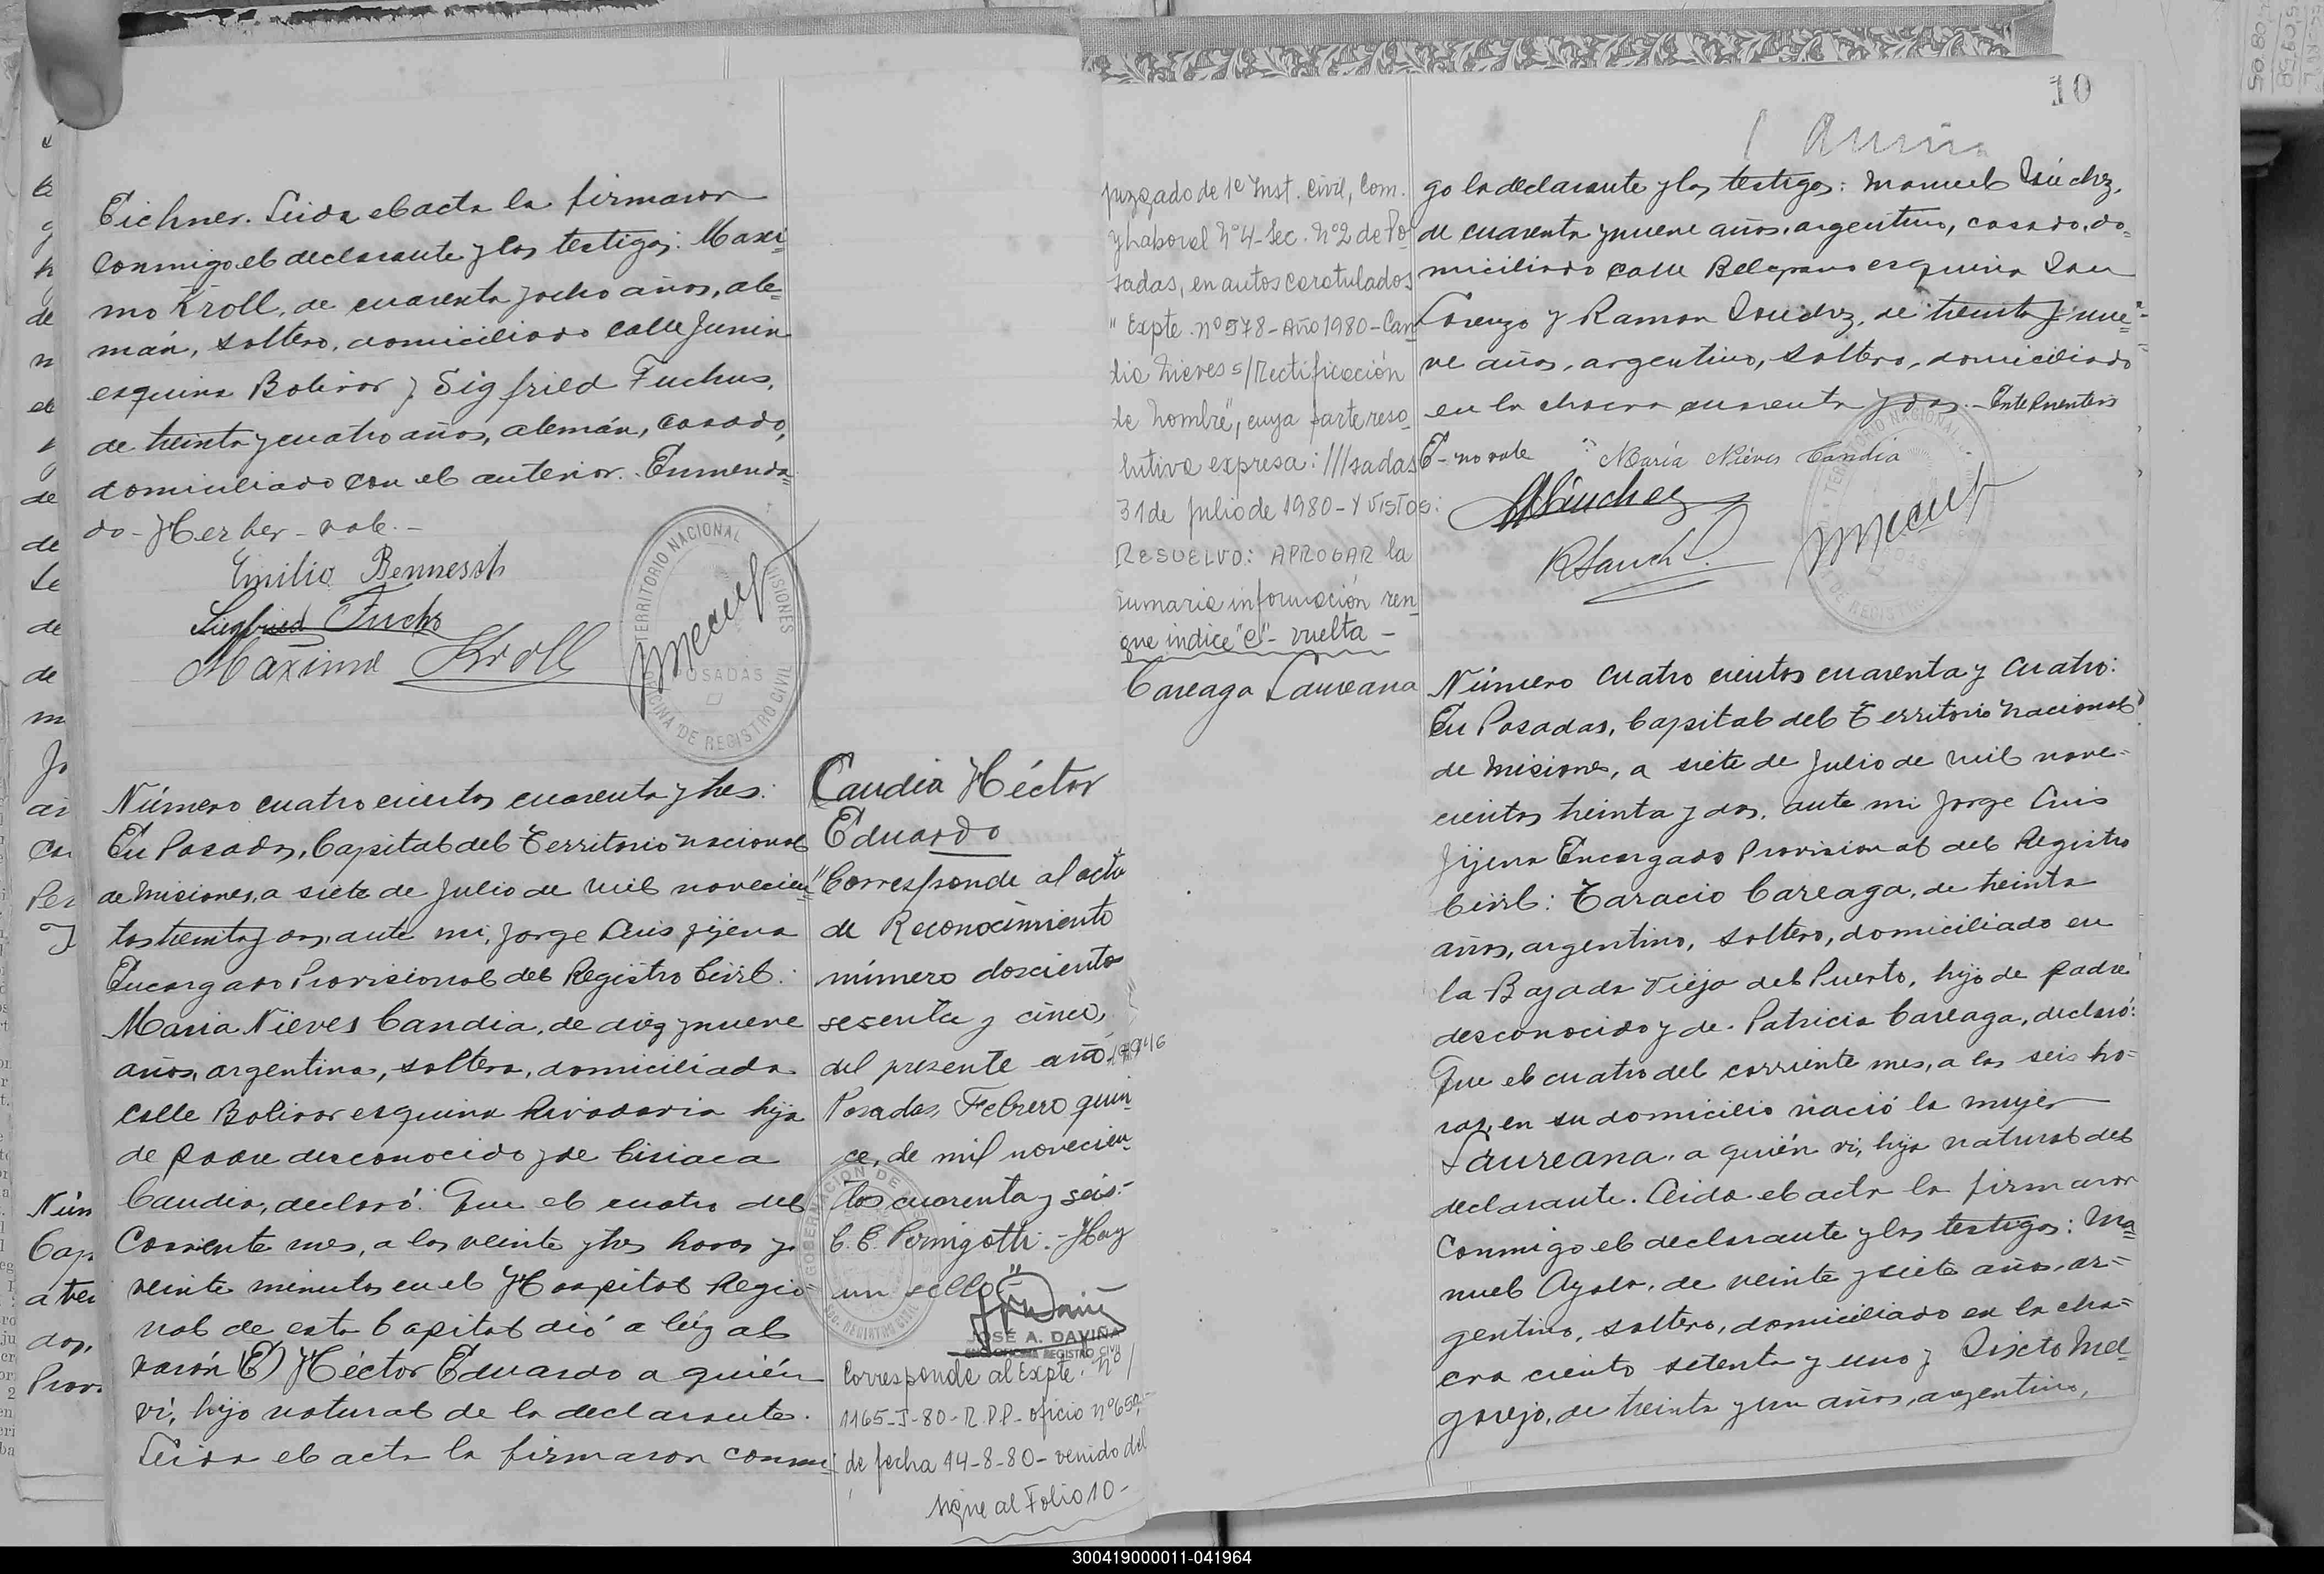 Eichner. Leida el acta la firmaron
conmigo el declarante y los testigos: Maxi-
mo Kroll, de cuarenta y ocho años, ale-
mán, soltero, domiciliado calle Junin
esquina Bolivar y Sigfried Fuchus,
de treinta y cuatro años, alemán, casado,
domiciliado con el anterior. Enmenda-
do - Herber - vale. -
Emilio Bennesch
Siegfried Fuchs
Maximo Kroll
TERRITORIO NACIONAL
MISIONES
POSADAS
OFICINA DE REGISTRO CIVIL
Número cuatro cientos cuarenta y tres:
En Posadas, Capital del Territorio Nacional
de Misiones, a siete de Julio de mil novecien-
tos treinta y dos, ante mi, Jorge Luis Jijena
Encargado Provisional del Registro Civil:
Maria Nieves Candia, de diez y nueve
años, argentina, soltera, domiciliada
calle Bolivar esquina Rivadavia hija
de padre desconocido y de Ciriaca
Candia, declaró: Que el cuatro del
corriente mes, a las veinte y tres horas y
veinte minutos en el Hospital Regio-
nal de esta Capital dió a lúz al
varón (E) Héctor Eduardo a quién
vi, hijo natural de la declarante.
Leida el acta la firmaron conmi-
Candia Héctor
Eduardo
"Corresponde al acta
de Reconocimiento
número doscientos
sesenta y cinco,
del presente año. 1946
Posadas, Febrero quin-
ce, de mil novecien-
tos cuarenta y seis.-
C. E. Pernigotti. - Hay
un sello"
JOSE A. DAVIÑA
ENC. OFICINA REGISTRO CIVIL
Corresponde al Expte. nº
1165-J-80-R.P.P.- oficio nº 650,-
de fecha 14-8-80 - venido del
sigue al Folio 10 -
10
Juzgado de 1º Inst. Civil, Com.
y Laboral Nº 4 - Sec. Nº 2 de Po-
sadas, en autos caratulados
"Expte. nº 578 - Año 1980 - Can-
dia Nieves s/Rectificación
de Nombre", cuya parte reso-
lutiva expresa: ///sadas
31 de julio de 1980 - Y VISTOS:
RESUELVO: APROBAR la
sumaria información ren-
que indice "C" - vuelta -
Careaga Laureana
go la declarante y los testigos: Manuel Sánchez,
de cuarenta y nueve años, argentino, casado, do-
miciliado calle Belgrano esquina San
Lorenzo y Ramon Sánchez, de treinta y nue-
ve años, argentino, soltero, domiciliado
en la chacra cuarenta y dos. - Entre Parentesis
E - no vale María Nieves Candia
MSánchez
RSanch
Número cuatro cientos cuarenta y cuatro:
En Posadas, Capital del Territorio Nacional
de Misiones, a siete de Julio de mil nove-
cientos treinta y dos, ante mi Jorge Luis
Jijena Encargado Provisional del Registro
Civil: Taracio Careaga, de treinta
años, argentino, soltero, domiciliado en
la Bajada Vieja del Puerto, hijo de padre
desconocido y de Patricia Careaga, declaró:
Que el cuatro del corriente mes, a las seis ho-
ras, en su domicilio nació la mujer
Laureana, a quién vi, hija natural del
declarante. Leida el acta la firmaron
conmigo el declarante y los testigos: Ma-
nuel Ayala, de veinte y siete años, ar-
gentino, soltero, domiciliado en la cha-
cra ciento setenta y uno y Sixto Mel-
garejo, de treinta y un años, argentino,
300419000011-041964